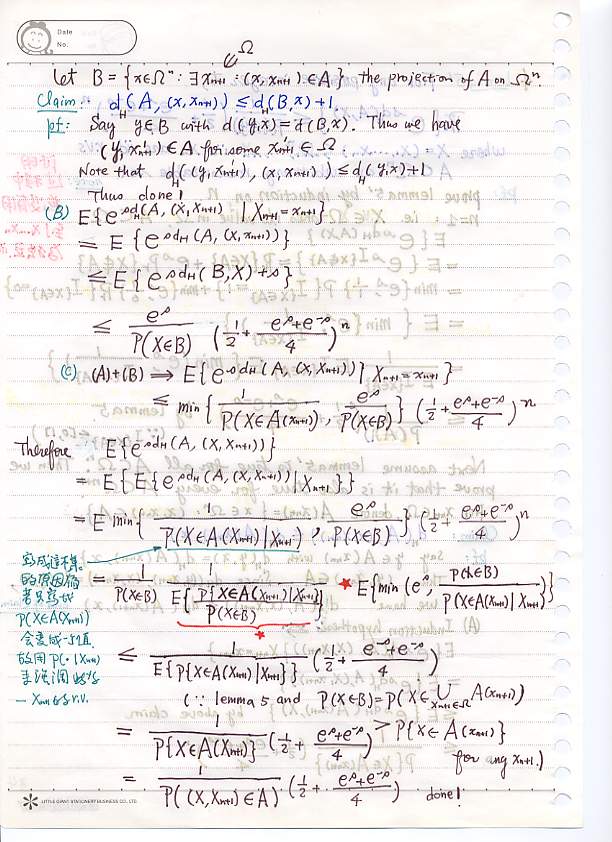 Date
No:
Ω
Let B = {x∈Ωⁿ : ∃ xₙ₊₁ : (x, xₙ₊₁) ∈ A} the projection of A on Ωⁿ.
Claim: d_H(A, (x, xₙ₊₁)) ≤ d_H(B, x) + 1.
pf: Say y∈B with d(y,x) = d(B,x). Thus we have
(y, x'ₙ₊₁) ∈ A for some x'ₙ₊₁ ∈ Ω.
Note that d_H((y, x'ₙ₊₁), (x, xₙ₊₁)) ≤ d_H(y,x) + 1
Thus done!
(B) E{e^{s d_H(A, (X, Xₙ₊₁))} | Xₙ₊₁ = xₙ₊₁}
= E{e^{s d_H(A, (X, xₙ₊₁))}}
≤ E{e^{s d_H(B, X) + s}}
≤ e^s / P(X∈B) (1/2 + (e^s + e^{-s})/4)ⁿ
(C) (A)+(B) ⟹ E{e^{s d_H(A, (X, Xₙ₊₁))} | Xₙ₊₁ = xₙ₊₁}
≤ min{1 / P(X∈A(xₙ₊₁)), e^s / P(X∈B)} (1/2 + (e^s + e^{-s})/4)ⁿ
Therefore E{e^{s d_H(A, (X, Xₙ₊₁))}}
= E{E{e^{s d_H(A, (X, Xₙ₊₁))} | Xₙ₊₁}}
= E min{1 / P(X∈A(Xₙ₊₁) | Xₙ₊₁), e^s / P(X∈B)} (1/2 + (e^s + e^{-s})/4)ⁿ
寫成這樣
的原因
若只寫成
P(X∈A(Xₙ₊₁)
會變成一個值
故用 P(· | Xₙ₊₁)
來強調
Xₙ₊₁ is r.v.
= 1 / P(X∈B) 1 / E{P{X∈A(Xₙ₊₁) | Xₙ₊₁} / P(X∈B)} ★ E{min(e^s, P(X∈B) / P(X∈A(Xₙ₊₁) | Xₙ₊₁))}
★
≤ 1 / E{P{X∈A(Xₙ₊₁) | Xₙ₊₁}} (1/2 + (e^s + e^{-s})/4)
(∵ lemma 5 and P(X∈B) = P(X∈ ∪_{xₙ₊₁∈Ω} A(xₙ₊₁))
= 1 / P{X∈A(Xₙ₊₁)} (1/2 + (e^s + e^{-s})/4) > P{X∈A(xₙ₊₁)}
for any xₙ₊₁.)
= 1 / P((X, Xₙ₊₁) ∈ A) (1/2 + (e^s + e^{-s})/4) done!
LITTLE GIANT STATIONERY BUSINESS CO., LTD.